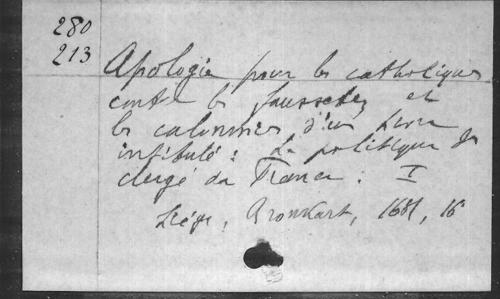 280
213
Apologie pour les catholiques
contre les faussetez et
les calomnies d'un livre
intitulé : La politique du
clergé de France : I
Liége, Bronkart, 1681, 16